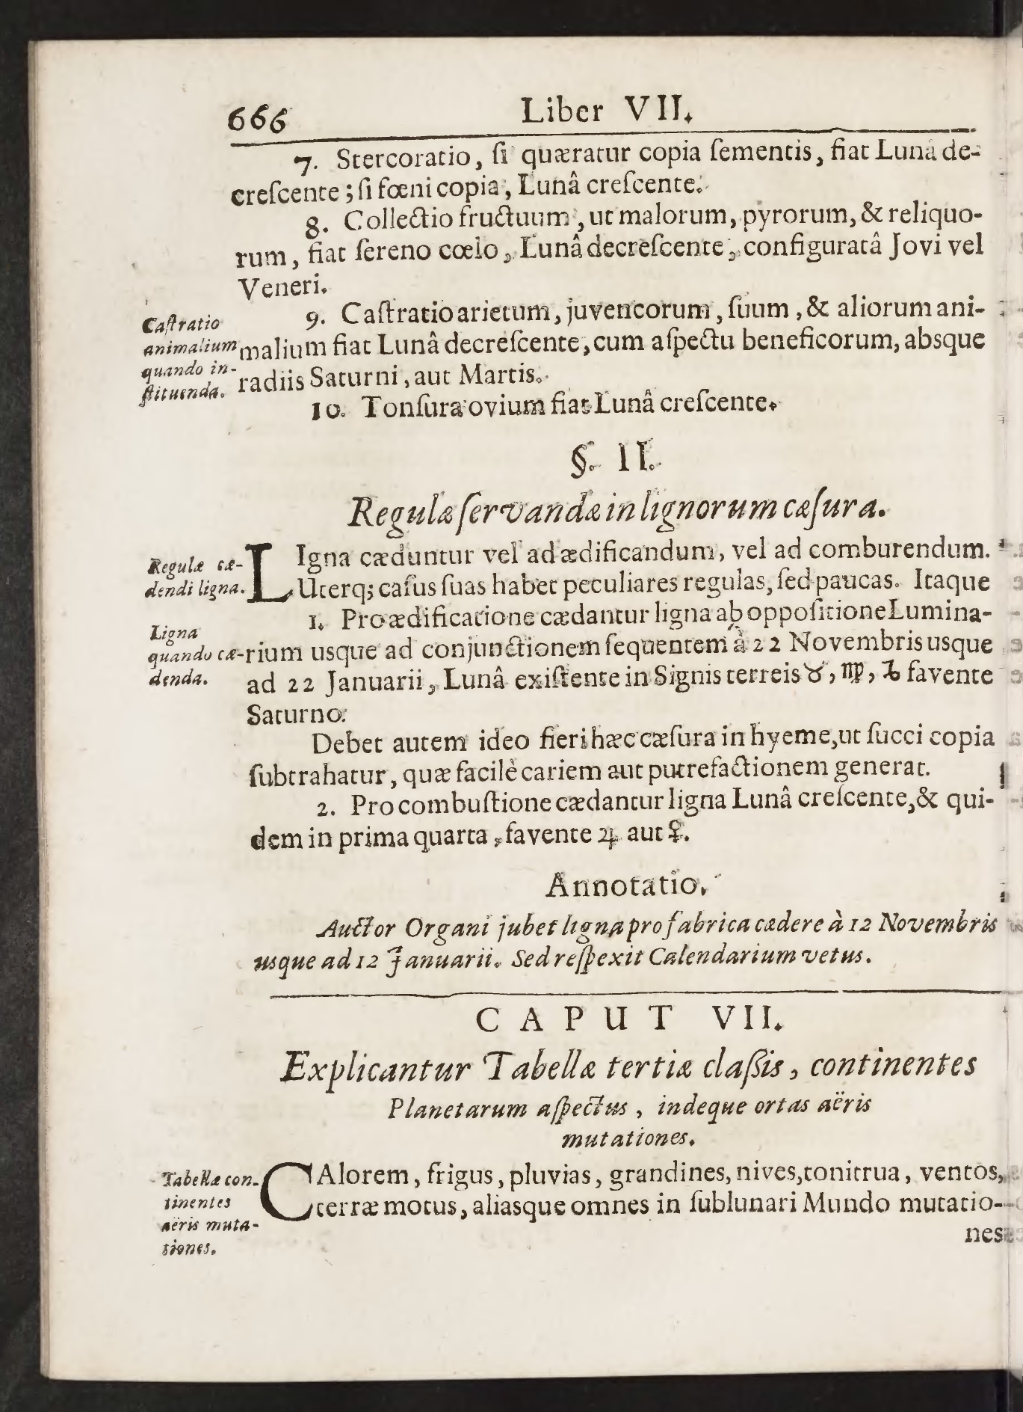 666 Liber VII.
7. Stercoratio, ſi quæratur copia ſementis, fiat Lunâ de-
creſcente; ſi fœni copia, Lunâ creſcente.
8. Collectio fructuum, ut malorum, pyrorum, & reliquo-
rum, fiat ſereno cœlo, Lunâ decreſcente, configuratâ Jovi vel
Veneri.
Caſtratio
animalium
quando in-
ſtituenda.
9. Caſtratio arietum, juvencorum, ſuum, & aliorum ani-
malium fiat Lunâ decreſcente, cum aſpectu beneficorum, absque
radiis Saturni, aut Martis.
10. Tonſura ovium fiat Lunâ creſcente.
§. II.
Regulæ ſervandæ in lignorum cæſura.
Regulæ cæ-
dendi ligna.
LIgna cæduntur vel ad ædificandum, vel ad comburendum.
Uterq; caſus ſuas habet peculiares regulas, ſed paucas. Itaque
Ligna
quando cæ-
denda.
1. Pro ædificatione cædantur ligna ab oppoſitione Lumina-
rium usque ad conjunctionem ſequentem à 22 Novembris usque
ad 22 Januarii, Lunâ exiſtente in Signis terreis ♉, ♍, ♑ favente
Saturno.
Debet autem ideo fieri hæc cæſura in hyeme, ut ſucci copia
ſubtrahatur, quæ facilè cariem aut putrefactionem generat.
2. Pro combuſtione cædantur ligna Lunâ creſcente, & qui-
dem in prima quarta, favente ♃ aut ♀.
Annotatio.
Auctor Organi jubet ligna pro fabrica cædere à 12 Novembris
usque ad 12 Januarii. Sed reſpexit Calendarium vetus.
CAPUT VII.
Explicantur Tabellæ tertiæ claſsis, continentes
Planetarum aſpectus, indeque ortas aëris
mutationes.
Tabellæ con-
tinentes
aëris muta-
tiones.
CAlorem, frigus, pluvias, grandines, nives, tonitrua, ventos,
terræ motus, aliasque omnes in ſublunari Mundo mutatio-
nes